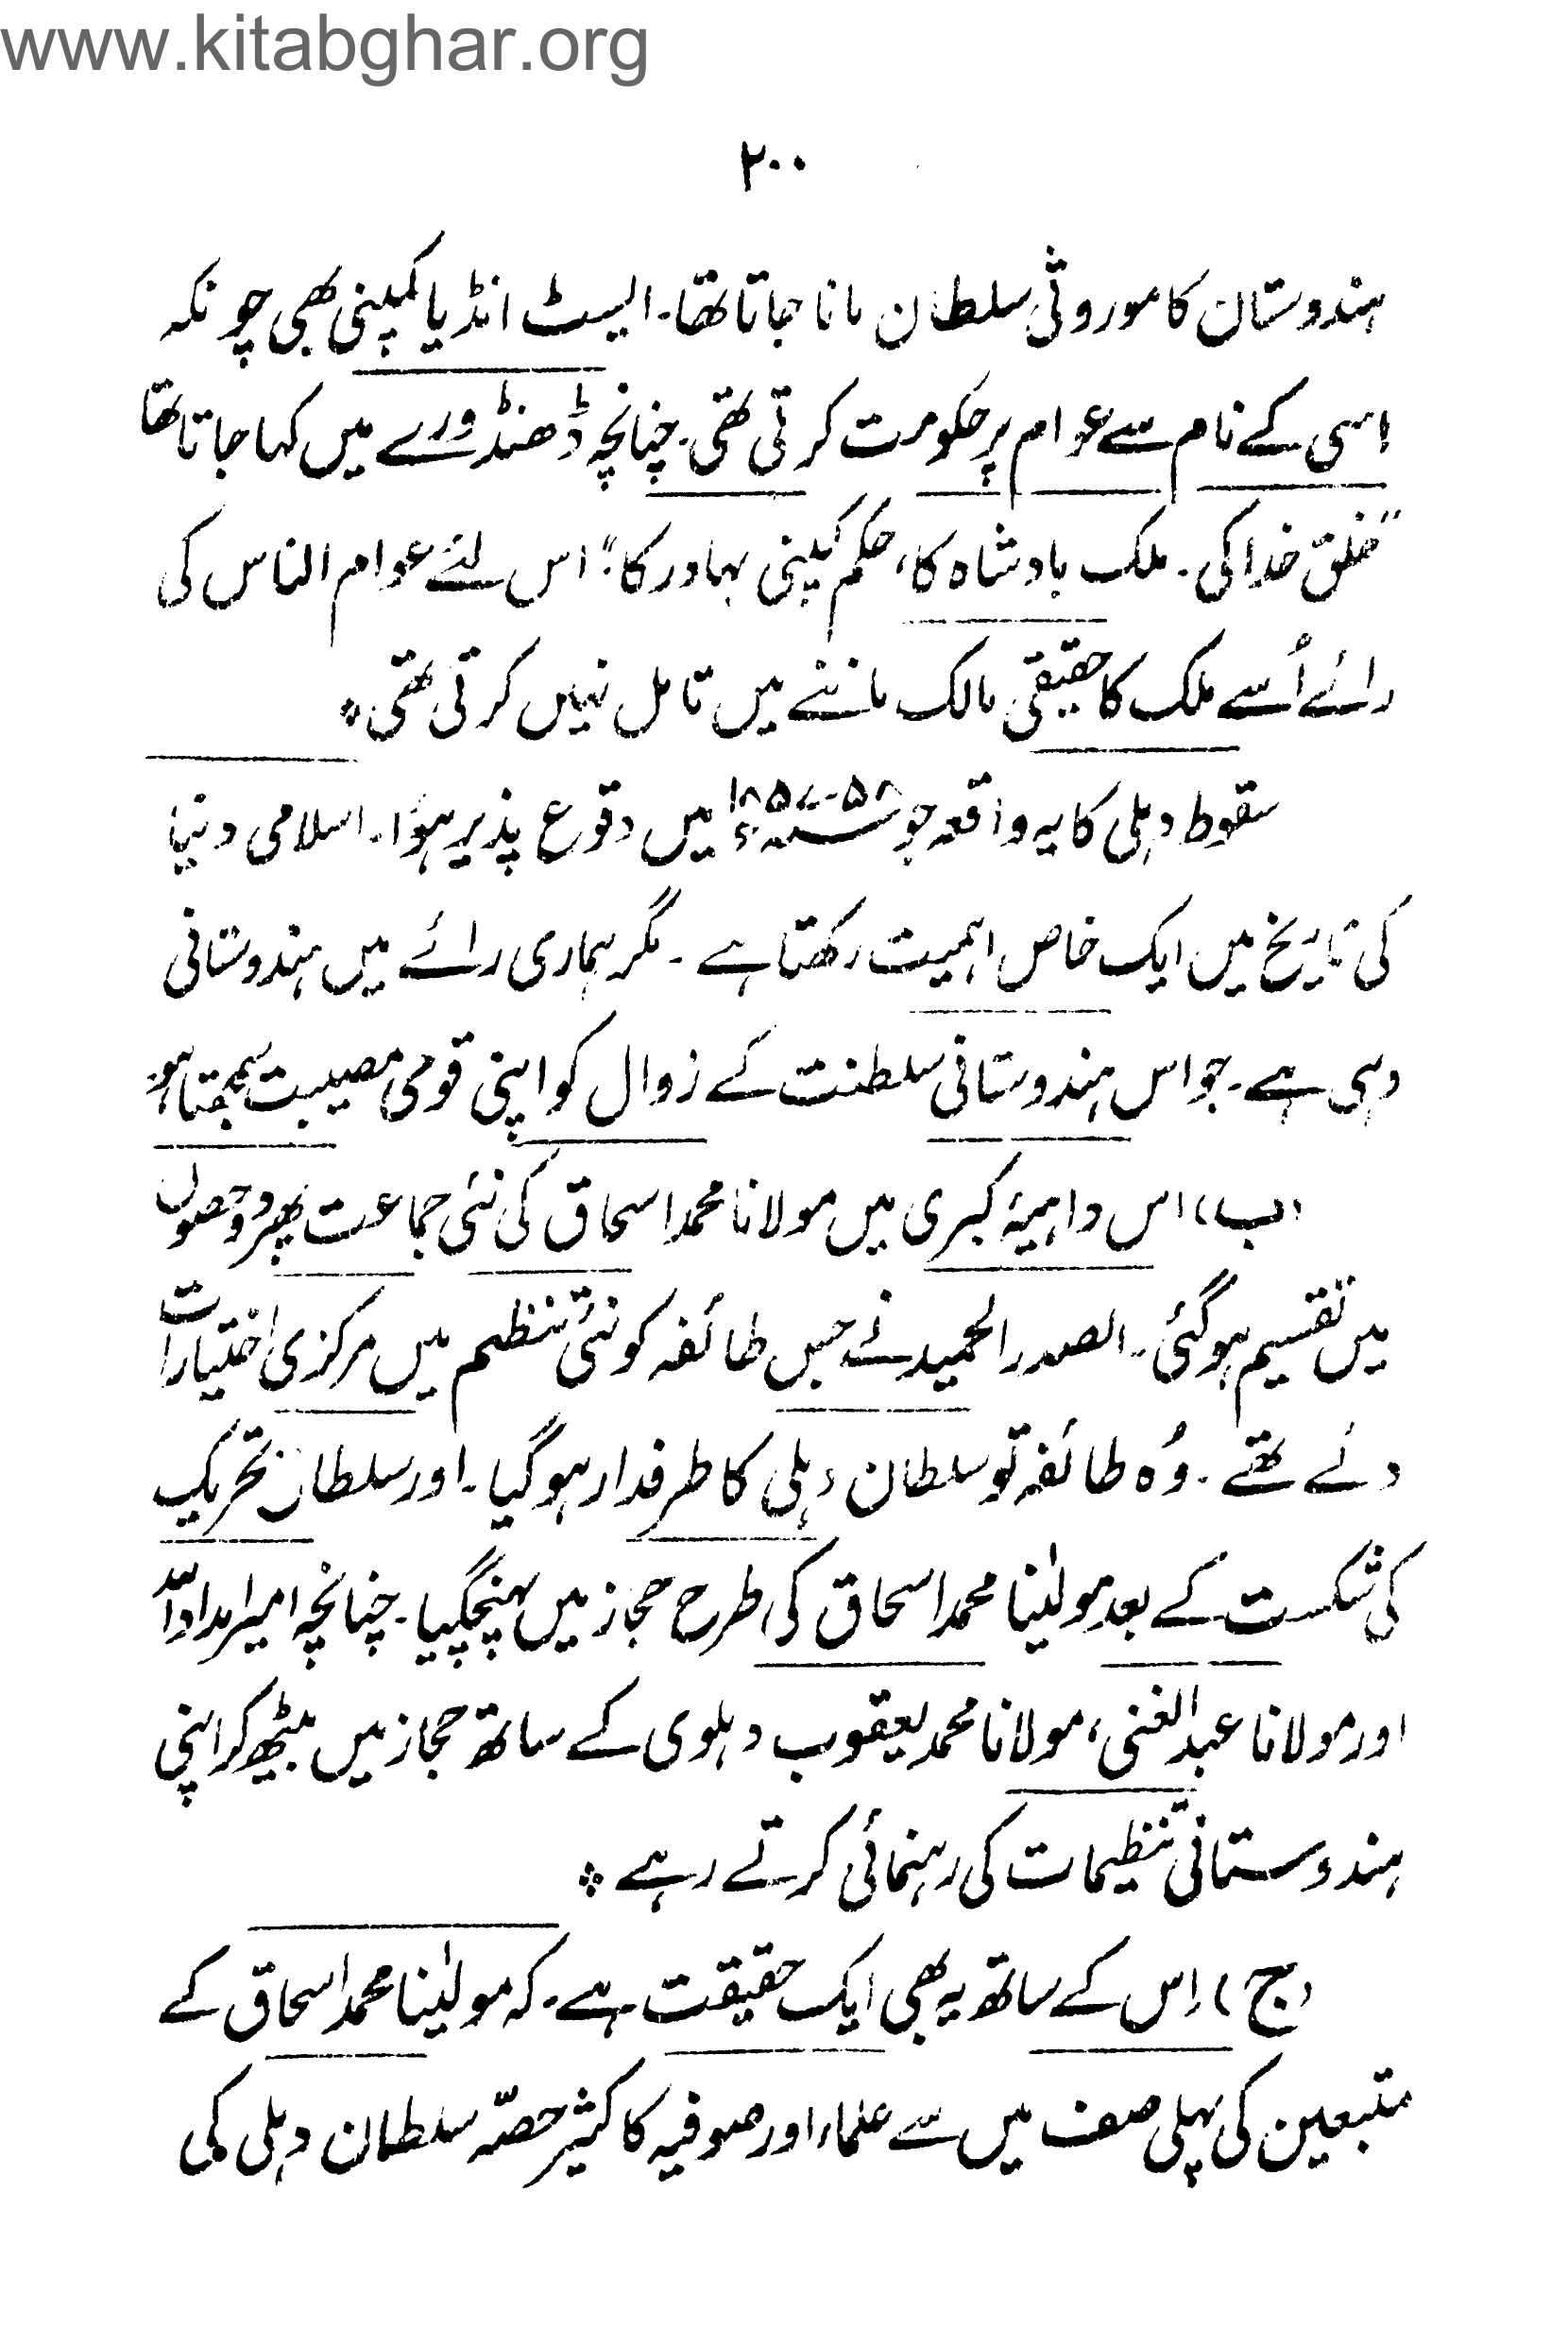 www.kitabghar.org
۲۰۰
ہندوستان کا موروثی سلطان مانا جاتا تھا۔ ایسٹ انڈیا کمپنی بھی چونکہ
اسی کے نام سے عوام پر حکومت کرتی تھی۔ چنانچہ ڈھنڈورے میں کہا جاتا تھا
"خلق خدا کی۔ ملک بادشاہ کا، حکم کمپنی بہادر کا"؛ اس لئے عوام الناس کی
رائے اُسے ملک کا حقیقی مالک ماننے میں تامل نہیں کرتی تھی ٭
سقوط دہلی کا یہ واقعہ جو ۵۸-۱۸۵۷ء میں وقوع پذیر ہوُا۔ اسلامی دنیا
کی تاریخ میں ایک خاص اہمیت رکھتا ہے۔ مگر ہماری رائے میں ہندوستانی
وہی ہے۔ جو اس ہندوستانی سلطنت کے زوال کو اپنی قومی مصیبت سمجھتا ہو
(ب) اس داہیۂ کبری میں مولانا محمد اسحاق کی نئی جماعت پھر دو حصوں
میں تقسیم ہو گئی۔ الصدر الحمید نے جس طائفہ کو نئی تنظیم میں مرکزی اختیارات
دئے تھے۔ وُہ طائفہ تو سلطان دہلی کا طرفدار ہو گیا۔ اور سلطان تحریک
کی شکست کے بعد مولٰینا محمد اسحاق کی طرح حجاز میں پہنچ گیا۔ چنانچہ امیر امداد اللہ
اور مولانا عبد الغنی، مولانا محمد یعقوب دہلوی کے ساتھ حجاز میں بیٹھ کر اپنی
ہندوستانی تنظیمات کی رہنمائی کرتے رہے ٭
(ج) اِس کے ساتھ یہ بھی ایک حقیقت ہے۔ کہ مولٰینا محمد اسحاق کے
متبعین کی پہلی صف میں سے علماء اور صوفیہ کا کثیر حصّہ سلطان دہلی کی